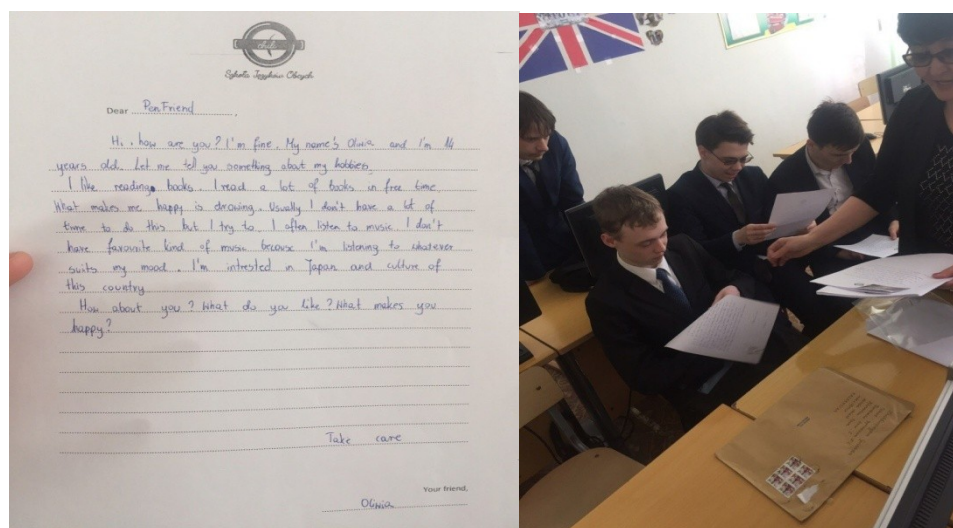 Szkoła Języków Obcych
Dear Pen Friend,
Hi, how are you? I'm fine. My name's Oliwia and I'm 14
years old. Let me tell you something about my hobbies.
I like reading books. I read a lot of books in free time.
What makes me happy is drawing. Usually I don't have a lot of
time to do this but I try to. I often listen to music. I don't
have favourite kind of music because I'm listening to whatever
suits my mood. I'm intrested in Japan and culture of
this country
How about you? What do you like? What makes you
happy?
Take care
Your friend,
Oliwia